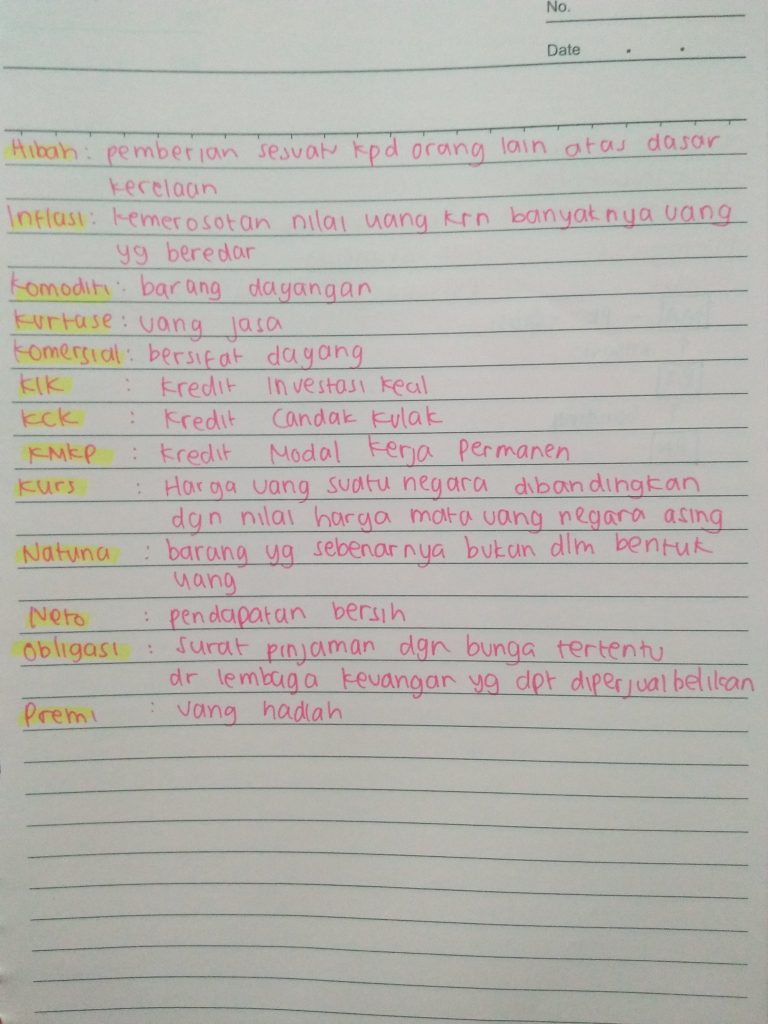 No.
Date . .
Hibah : pemberian sesuatu kpd orang lain atas dasar
kerelaan
Inflasi : kemerosotan nilai uang krn banyaknya uang
yg beredar
Komoditi : barang dagangan
Kurtase : uang jasa
Komersial : bersifat dagang
KIK : Kredit Investasi Keal
KCK : Kredit Candak Kulak
KMKP : Kredit Modal Kerja Permanen
Kurs : Harga uang suatu negara dibandingkan
dgn nilai harga mata uang negara asing
Natuna : barang yg sebenarnya bukan dlm bentuk
uang
Neto : pendapatan bersih
Obligasi : Surat pinjaman dgn bunga tertentu
dr lembaga keuangan yg dpt diperjualbelikan
Premi : uang hadiah